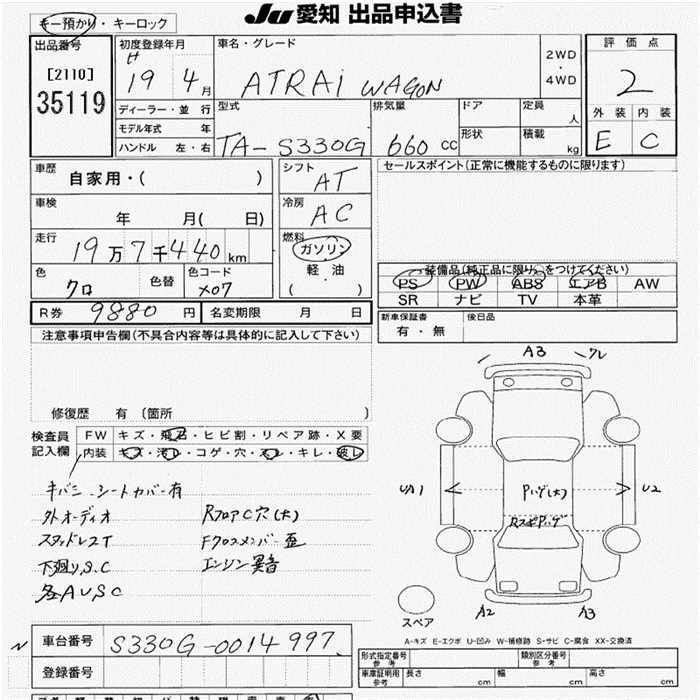 JU 愛知 出品申込書
キー預かり・キーロック
出品番号
[2110]
35119
初度登録年月
H
19 4月
車名・グレード
ATRAI WAGON
2WD
・
4WD
評価点
2
外装 内装
E C
ディーラー・並行
モデル年式 年
ハンドル 左・右
型式
TA-S330G
排気量
660 CC
ドア
形状
定員 人
積載 kg
車歴
自家用・( )
シフト
AT
セールスポイント(正常に機能するものに限ります)
車検
年 月( 日)
冷房
AC
走行
19万7千440km
燃料
ガソリン
軽・油
( ・ )
色
クロ
色替
色コード
X07
装備品(純正品に限り○をつけてください)
PS PW ABS エアB AW
SR ナビ TV 本革
R券 9880円
名変期限 月 日
新車保証書
有・無
後日品
注意事項申告欄(不具合内容等は具体的に記入して下さい)
修復歴 有 〔箇所 〕
検査員
記入欄
FW キズ・飛石・ヒビ割・リペア跡・X要
内装 キズ・汚レ・コゲ・穴・スレ・キレ・破レ
キバミ シートカバー有
外オーディオ RフロアC穴(大)
スタッドレスT Fクロスメンバー歪
下廻りS.C エンジン異音
各AUSC
A3 クレ
UA1
Pハゲ(大)
U2
A2 A3
スペア
A-キズ E-エクボ U-凹み W-補修跡 S-サビ C-腐食 XX-交換済
車台番号 S330G-0014997
登録番号
型式指定番号
参考
類別区分番号
参考
車庫証明用
参考
長さ cm 幅 cm 高さ cm